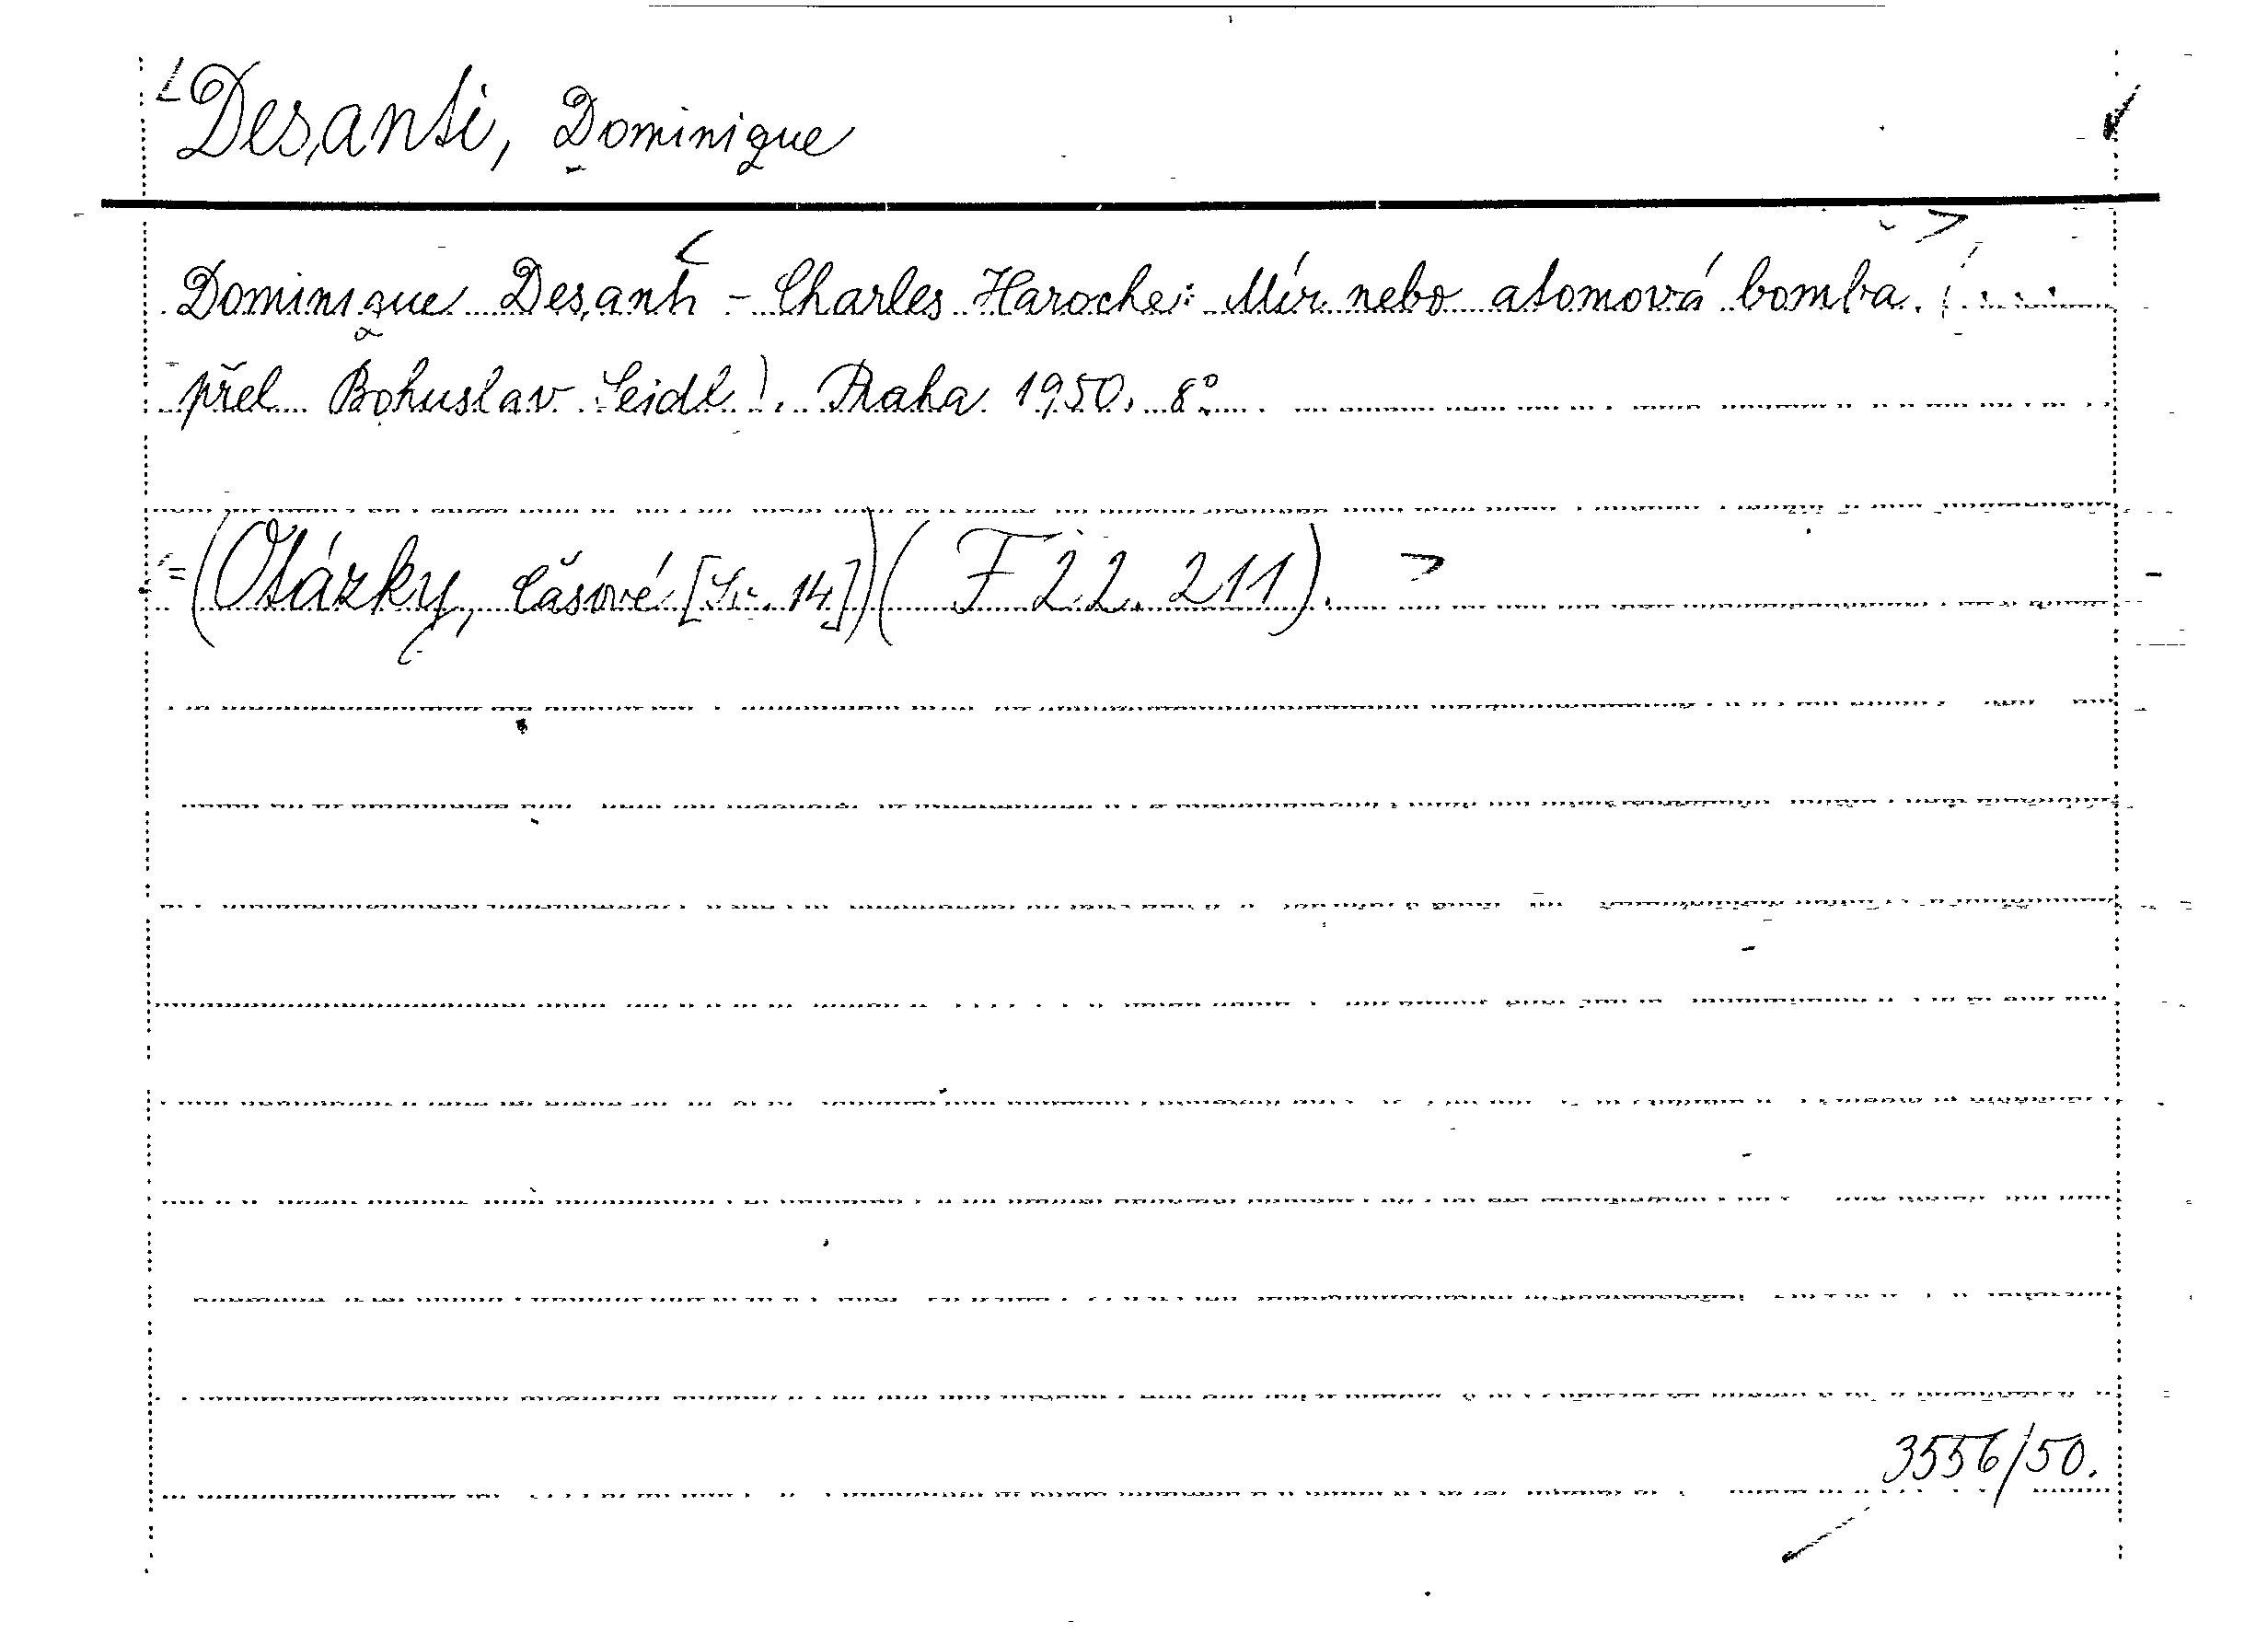 Desanti, Dominique
Dominique Desanti - Charles Haroche: Mír nebo atomová bomba. (...
přel. Bohuslav Seidl). Praha 1950. 8°.
= (Otázky, časové [Sv. 14]) (F 22. 211).
3556/50.